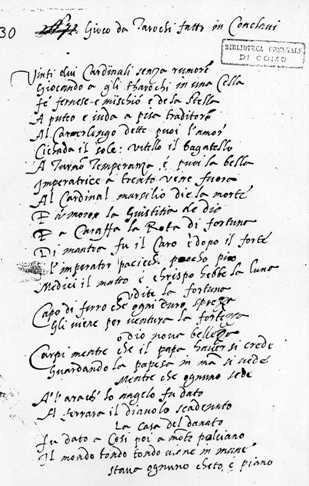 30 Gioco da Tarochi fatti in Conclavi
BIBLIOTECA COMUNALE
DI COMO
Vinti dui Cardinali senza rumore
Giocando a gli tharochi in una Cella
Fe fernese e mischiò e dè la stella
A puteo e iuda a pisa traditore
Al Camerlengo dette puoi l'amor
Cichada il sole: vitello il bagatello
A Turno Temperanza e puoi la bella
Imperatrice a trento vene fuora
Al Cardinal marsilio die la morte
E a moron la Giustitia de dio
E a Caraffa la Rota di fortuna
Di mantoa fu il Caro e dopo il forte
l'imperator paciech pocho pio
Medici il matto e chrispo hebbe la luna
vidite la fortuna
Capo di ferro che ogni duro spezza
Gli viene per ventura la fortezza
o dio nova bellezza
Carpi mentre che il papa haver si crede
Guardando la papesa in man si vede
Mentre che ognuno sede
lo angelo fu dato
Al Ferrara il diavolo scadenato
La casa del danato
Fu dato a Cesi poi a monte pulciano
Il mondo tondo tondo viene in mane
stava ognuno cheto, e piano